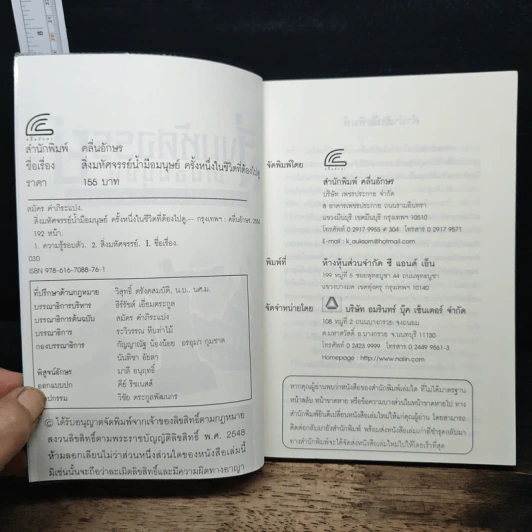 สำนักพิมพ์ คลื่นอักษร
ชื่อเรื่อง สิ่งมหัศจรรย์น้ำมือมนุษย์ ครั้งหนึ่งในชีวิตที่ต้องไปดู
ราคา 155 บาท
สมัคร คำภิระแปง.
สิ่งมหัศจรรย์น้ำมือมนุษย์ ครั้งหนึ่งในชีวิตที่ต้องไปดู.-- กรุงเทพฯ : คลื่นอักษร,
192 หน้า.
1. ความรู้รอบตัว. 2. สิ่งมหัศจรรย์. I. ชื่อเรื่อง.
030
ISBN 978-616-7088-76-1
ที่ปรึกษาด้านกฎหมาย วิสุทธิ์ ตรังคสมบัติ, น.บ., นศ.ม.
บรรณาธิการบริหาร ธีร์รัชต์ เอี่ยมตระกูล
บรรณาธิการต้นฉบับ สมัคร คำภิระแปง
บรรณาธิการ ระวิวรรณ หีบท่าไม้
กองบรรณาธิการ กัญญาณัฐ น้องน้อย อรอุมา กุมชาด
นันทิชา อัยดา
พิสูจน์อักษร มาลี อนุฤทธิ์
ออกแบบปก คีย์ ริชเนสส์
วิชัย ตระกูลพัฒนกร
© ได้รับอนุญาตจัดพิมพ์จากเจ้าของลิขสิทธิ์ตามกฎหมาย
สงวนลิขสิทธิ์ตามพระราชบัญญัติลิขสิทธิ์ พ.ศ. 2548
ห้ามลอกเลียนไม่ว่าส่วนหนึ่งส่วนใดของหนังสือเล่มนี้
มิเช่นนั้นจะถือว่าละเมิดลิขสิทธิ์และมีความผิดทางอาญา
จัดพิมพ์โดย
สำนักพิมพ์ คลื่นอักษร
บริษัท เพชรประกาย จำกัด
8 อาคารเพชรประกาย ถนนรามอินทรา
แขวงมีนบุรี เขตมีนบุรี กรุงเทพฯ 10510
โทรศัพท์ 0 2917 9966 # 304 โทรสาร 0 2917 9571
E-mail : k_auksorn@hotmail.com
พิมพ์ที่ ห้างหุ้นส่วนจำกัด ซี แอนด์ เอ็น
199 หมู่ที่ 5 ซอยพุทธบูชา 44 ถนนพุทธบูชา
แขวงบางมด เขตทุ่งครุ กรุงเทพฯ 10140
จัดจำหน่ายโดย บริษัท อมรินทร์ บุ๊ค เซ็นเตอร์ จำกัด
108 หมู่ที่ 2 ถนนบางกรวย-จงถนอม
ต.มหาสวัสดิ์ อ.บางกรวย จ.นนทบุรี 11130
โทรศัพท์ 0 2423 9999 โทรสาร 0 2449 9561-3
Homepage : http://www.naiin.com
หากคุณผู้อ่านพบว่าหนังสือของสำนักพิมพ์เล่มใด ที่ไม่ได้มาตรฐาน
หน้าสลับ หน้าขาดหาย หรือข้อความบางส่วนในหน้าขาดหายไป ทาง
สำนักพิมพ์ยินดีเปลี่ยนหนังสือเล่มใหม่ให้แก่คุณผู้อ่าน โดยสามารถ
ติดต่อกลับมายังสำนักพิมพ์ พร้อมส่งหนังสือเล่มเก่าที่ชำรุดกลับมา
ทางสำนักพิมพ์จะได้จัดส่งหนังสือเล่มใหม่ไปให้โดยเร็วที่สุด